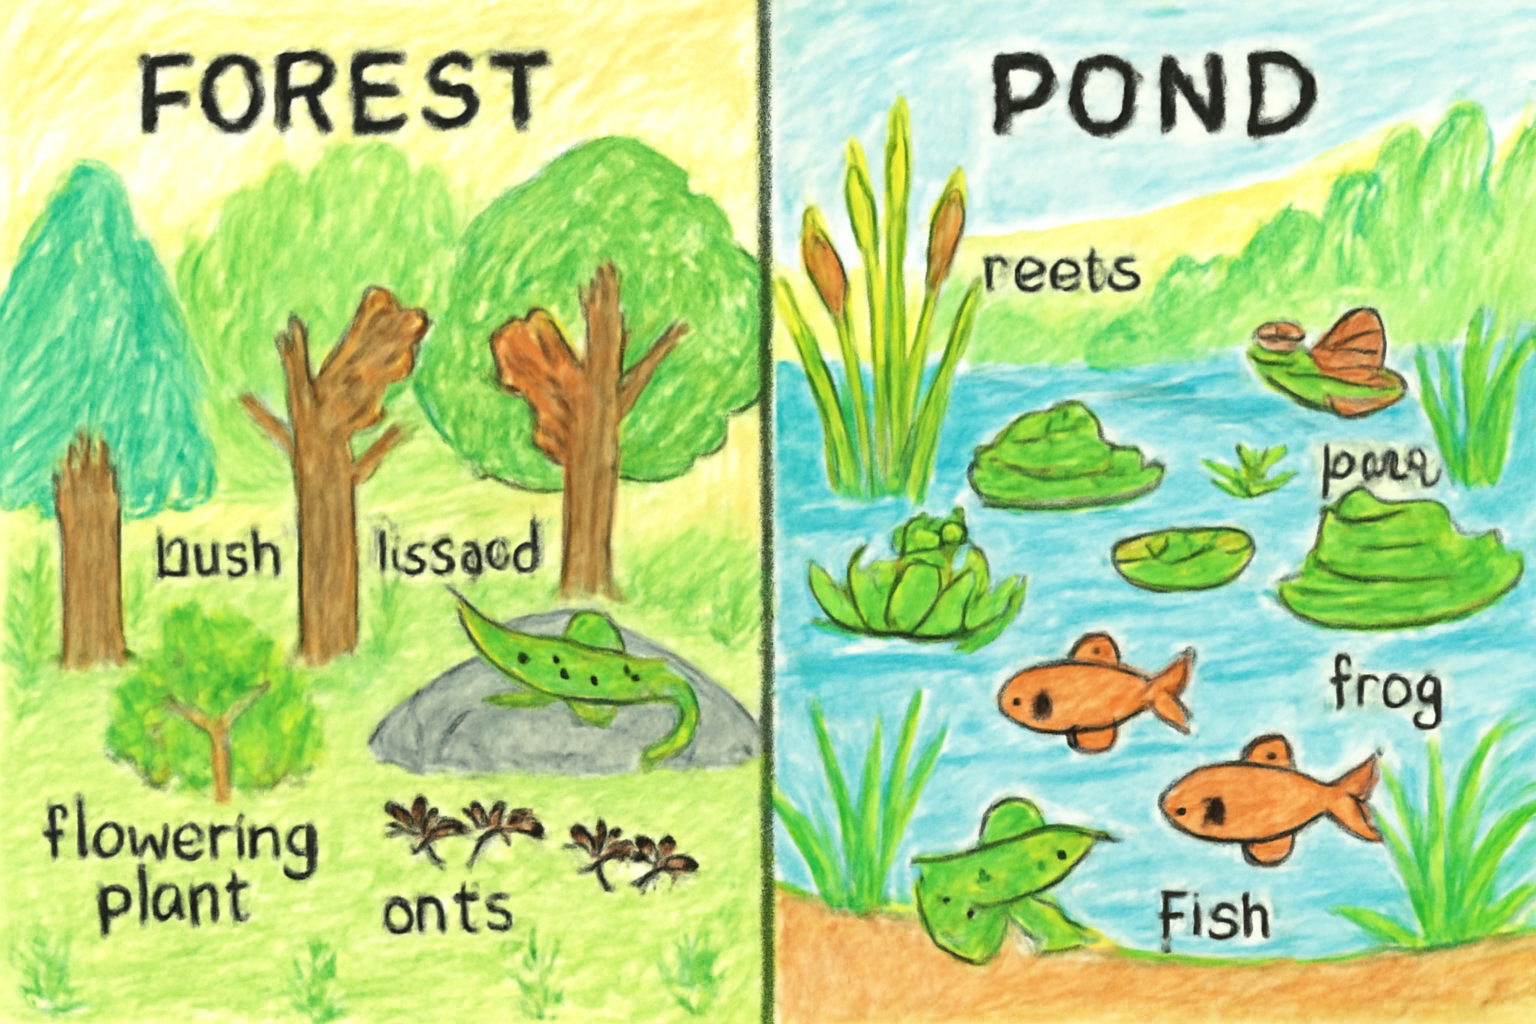 FOREST
bush
lissaod
flowering
plant
onts
POND
reets
frog
Fish